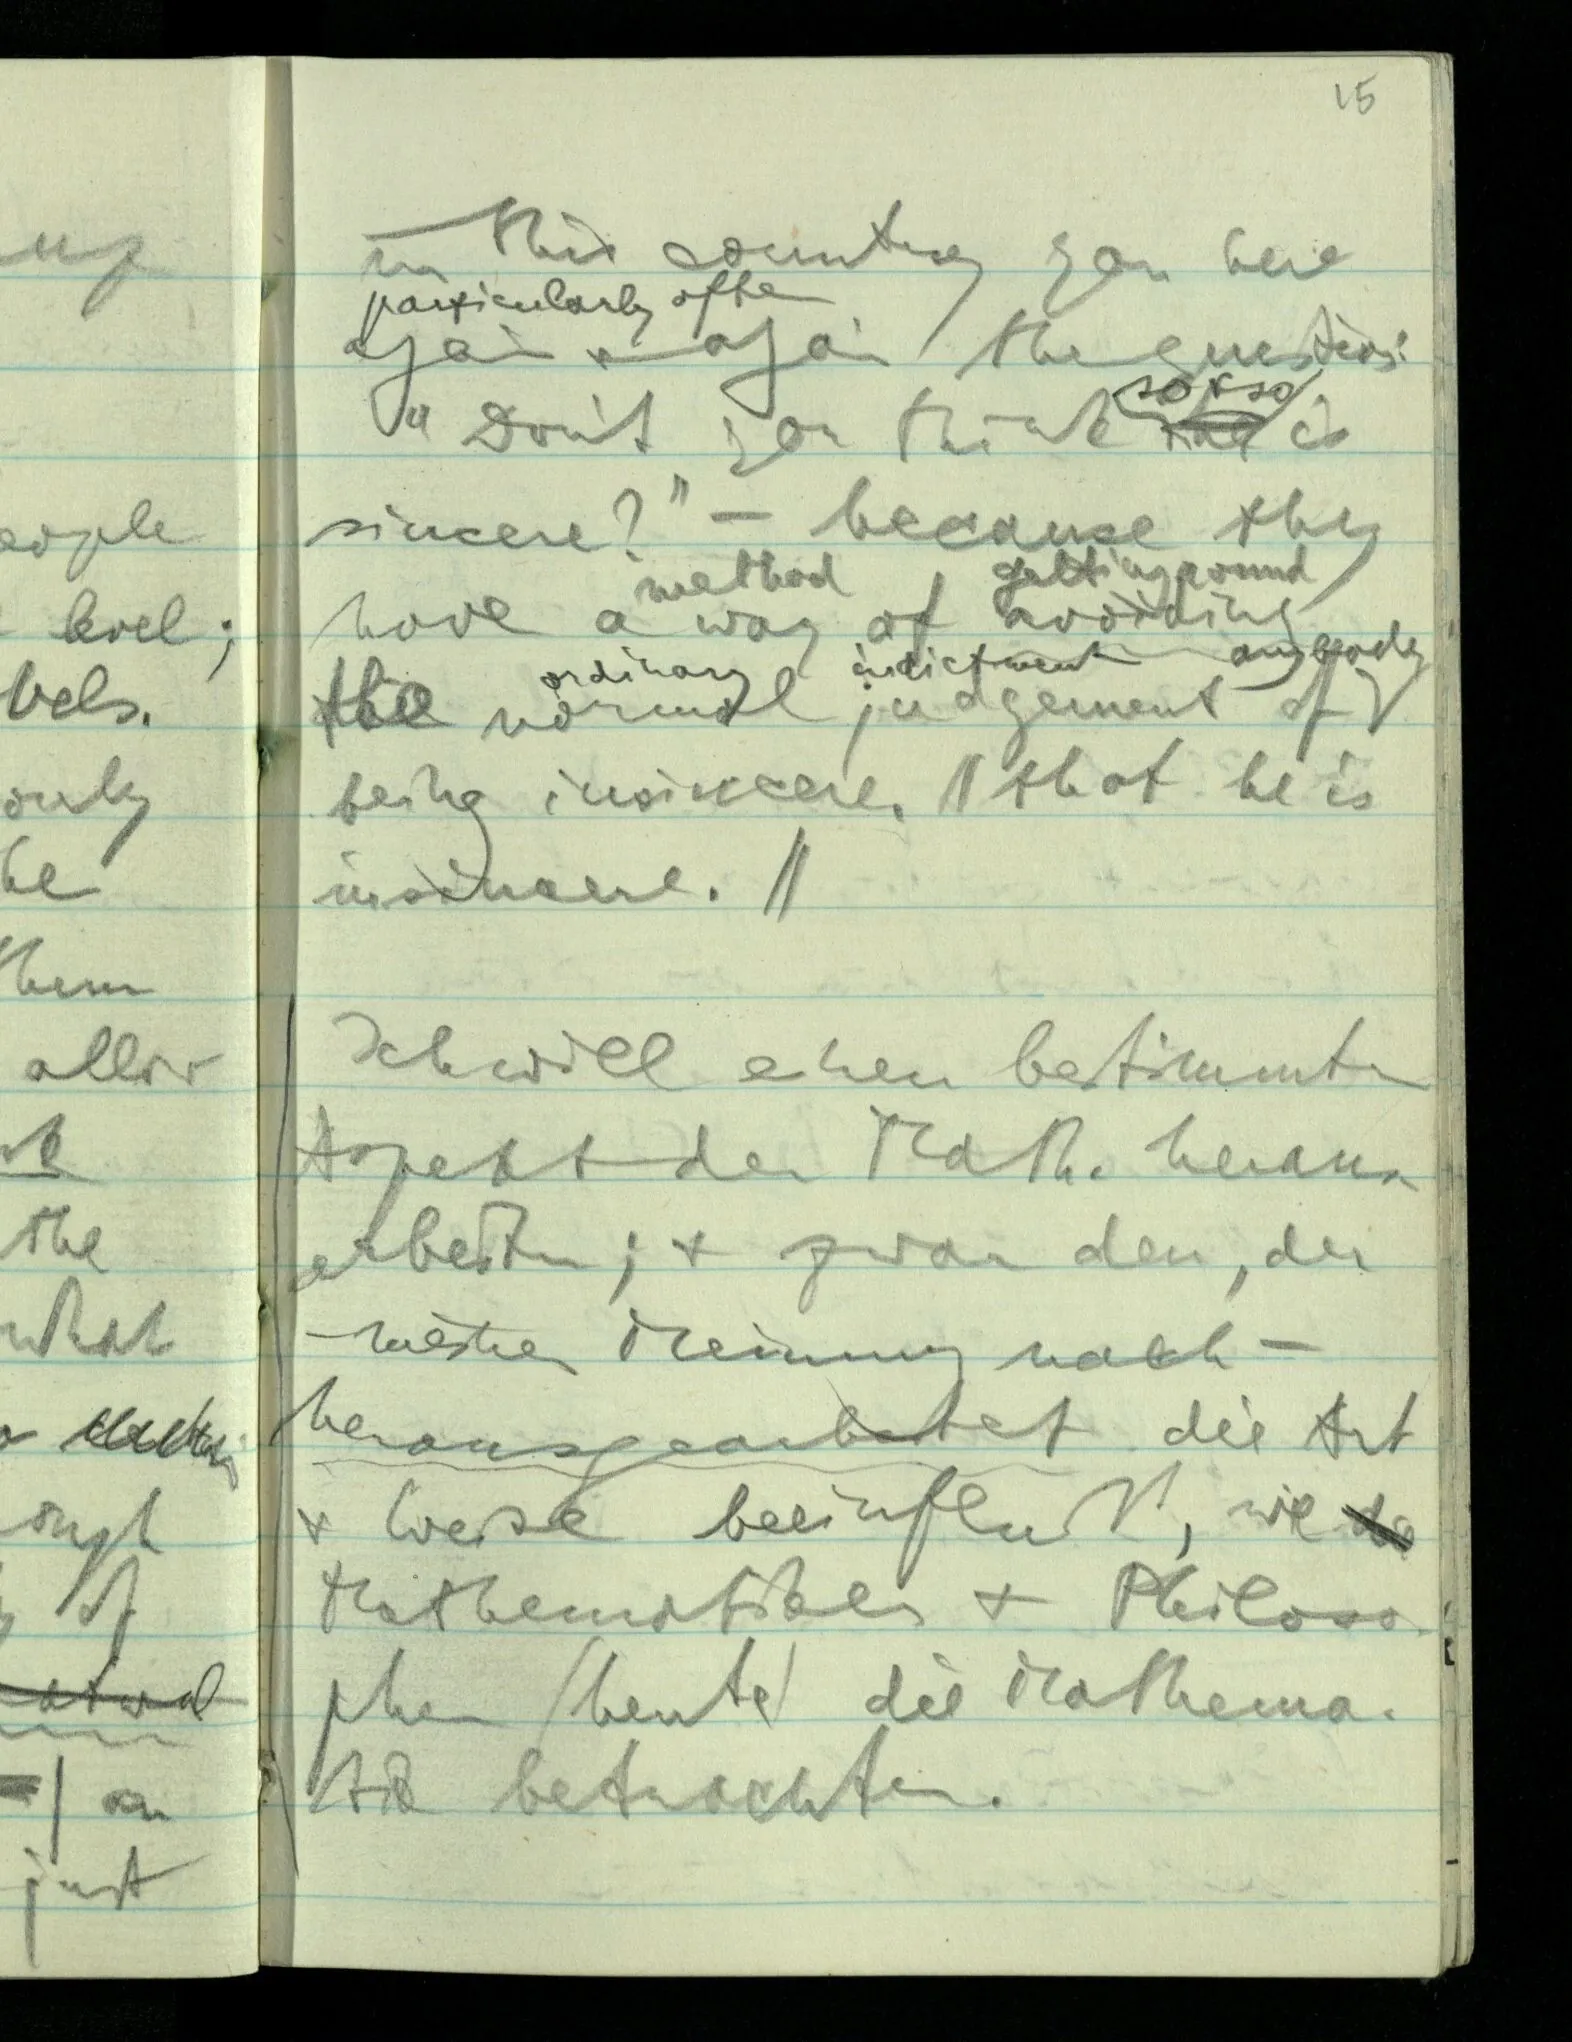 15
in this country you here
particularly often
again & again the question:
so & so
"Don't you think is
sincere?" — because they
method getting round
have a way of avoiding
ordinary indictment anybody
the normal judgement of
being insincere. // that he is
insincere. //
Ich will einen bestimmten
Aspekt der Math. heraus
arbeiten; & zwar den, der
– meiner Meinung nach –
herausgearbeitet die Art
& Weise beeinflußt, wie
Mathematiker & Philoso-
phen (heute) die Mathema-
tik betrachten.
people
level;
only
he
them
allow
the
what
of
an
just